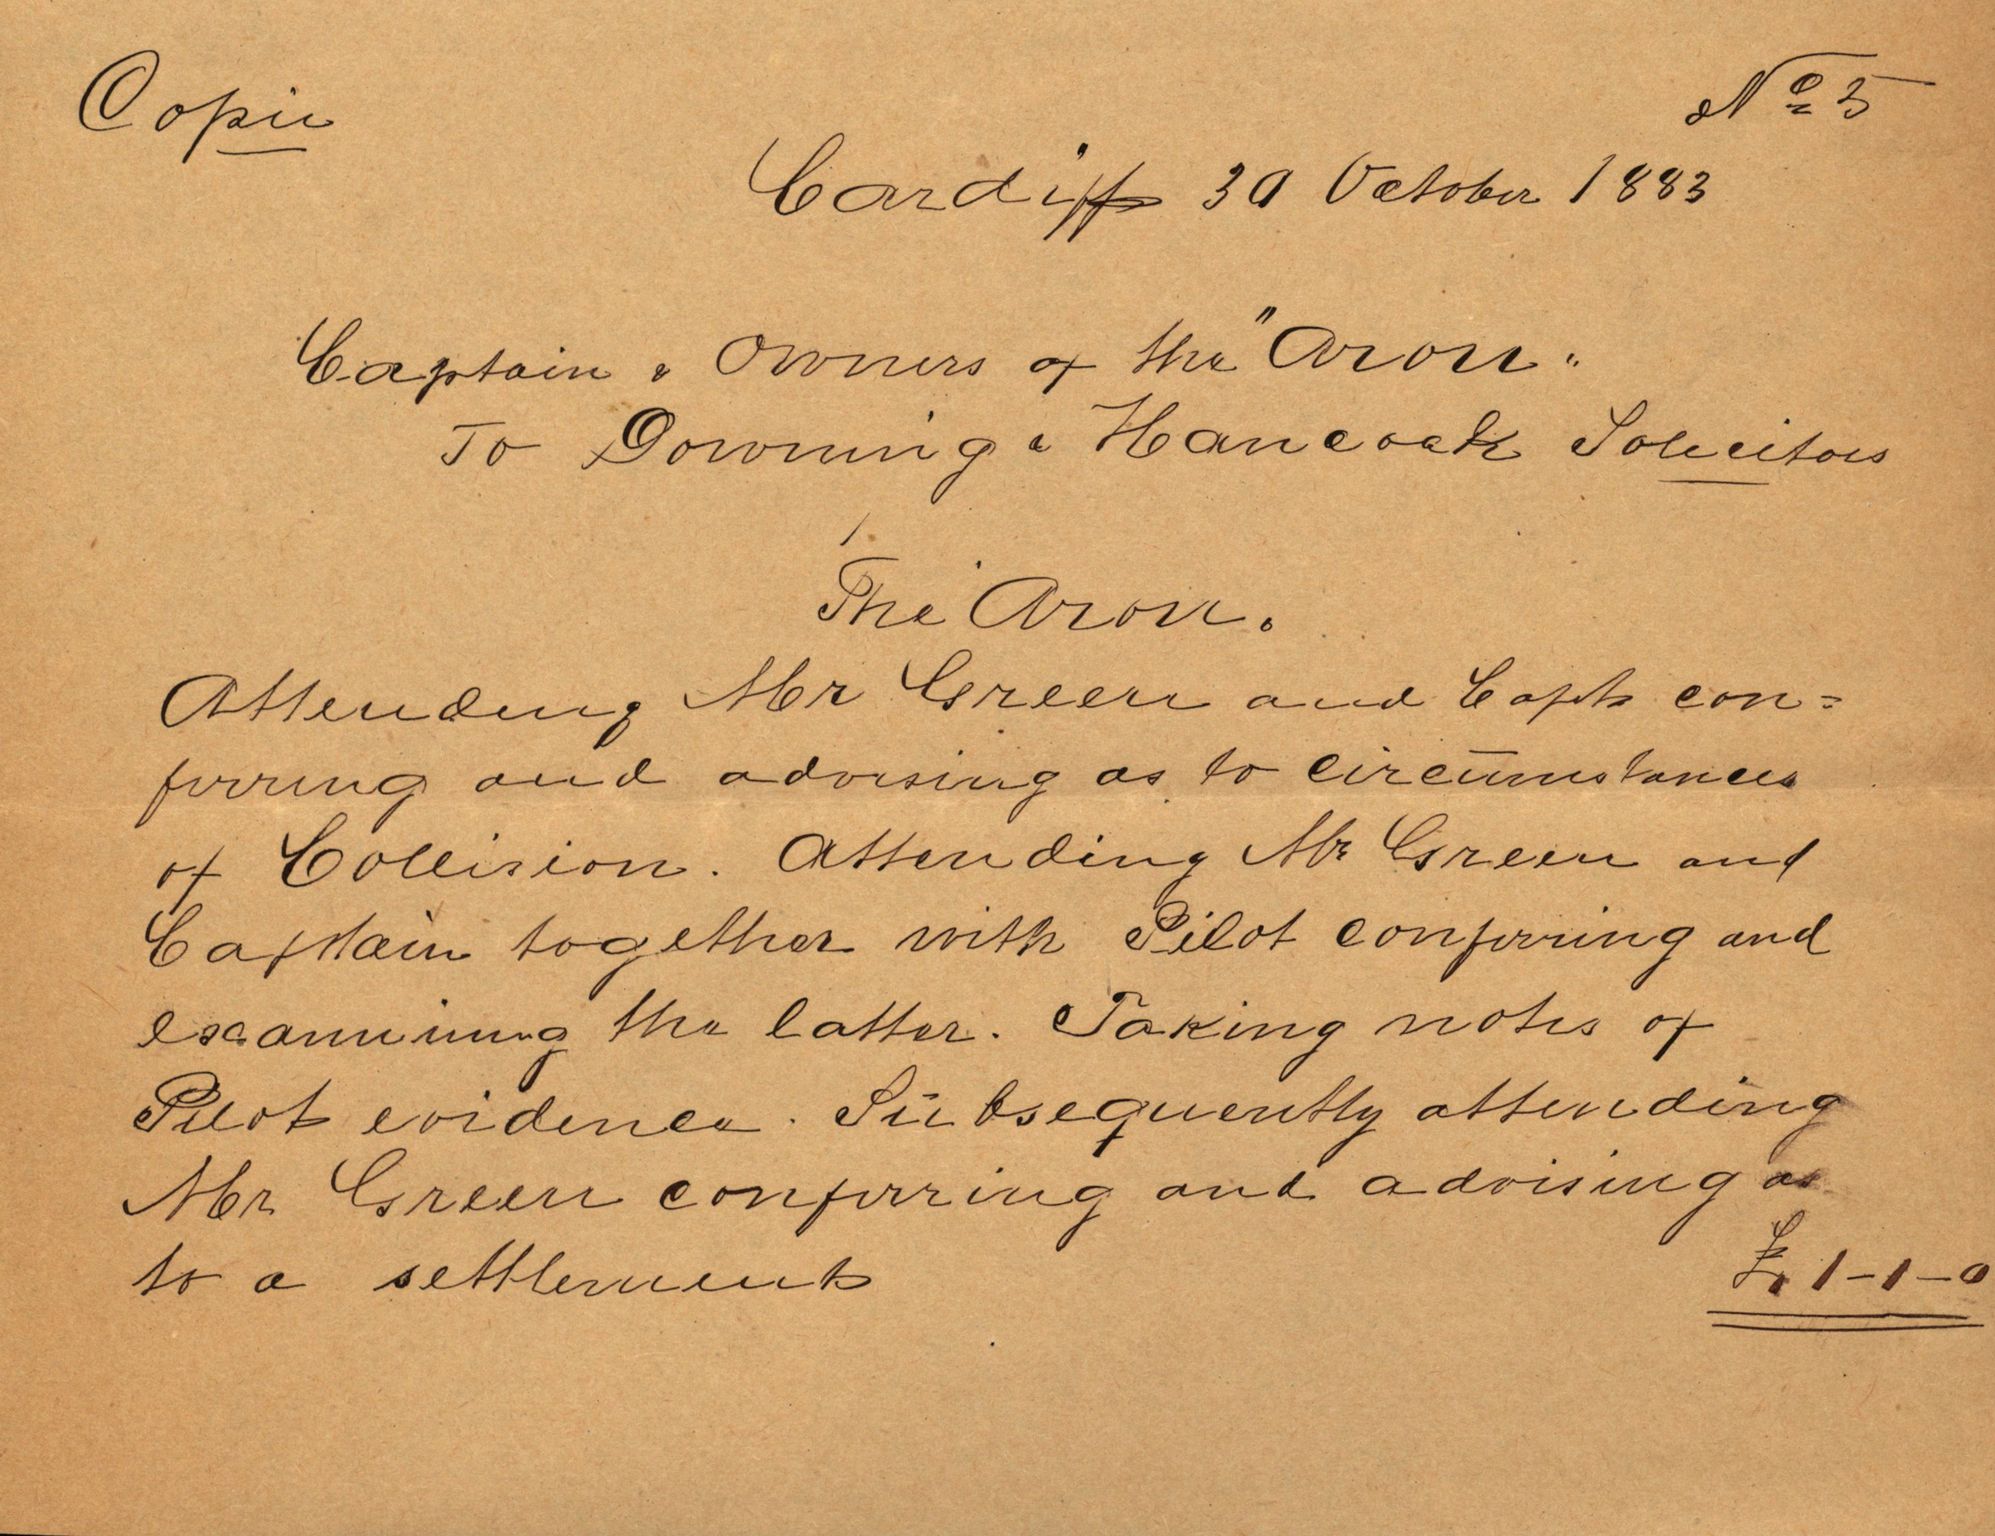 Copie
No 5
Cardiff 30 October 1883
Captain & Owners of the "Aron"
To Downing & Hancock Solicitors
The "Aron"
Attending Mr Green and Capt con=
ferring and advising as to circumstances
of Collision. Attending Mr Green and
Captain together with Pilot conferring and
examining the latter. Taking notes of
Pilot evidence. Subsequently attending
Mr Green conferring and advising as
to a settlement
£ 1-1-0